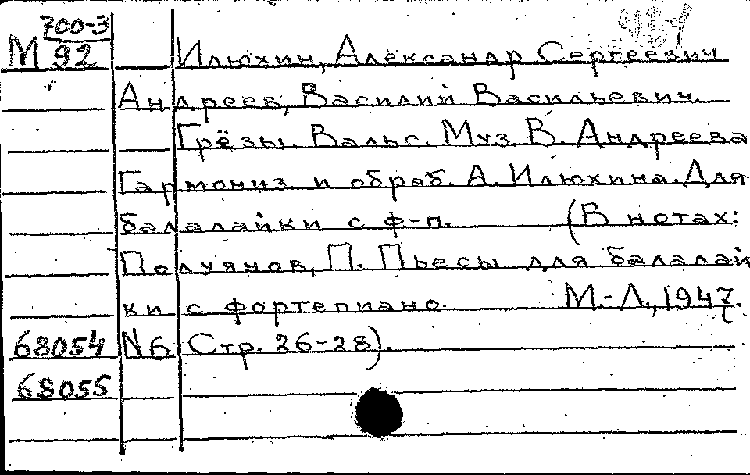 700-3
М 92 Илюхин, Александр Сергеевич
Андреев, Василий Васильевич.
Грёзы. Вальс. Муз. В. Андреева
Гармониз. и обраб. А. Илюхина. Для
балалайки с ф-п. (В нотах:
Полуянов, П. Пьесы для балалай
ки с фортепиано. М.-Л., 1947.
68054 N6 Стр. 26-28).
68055